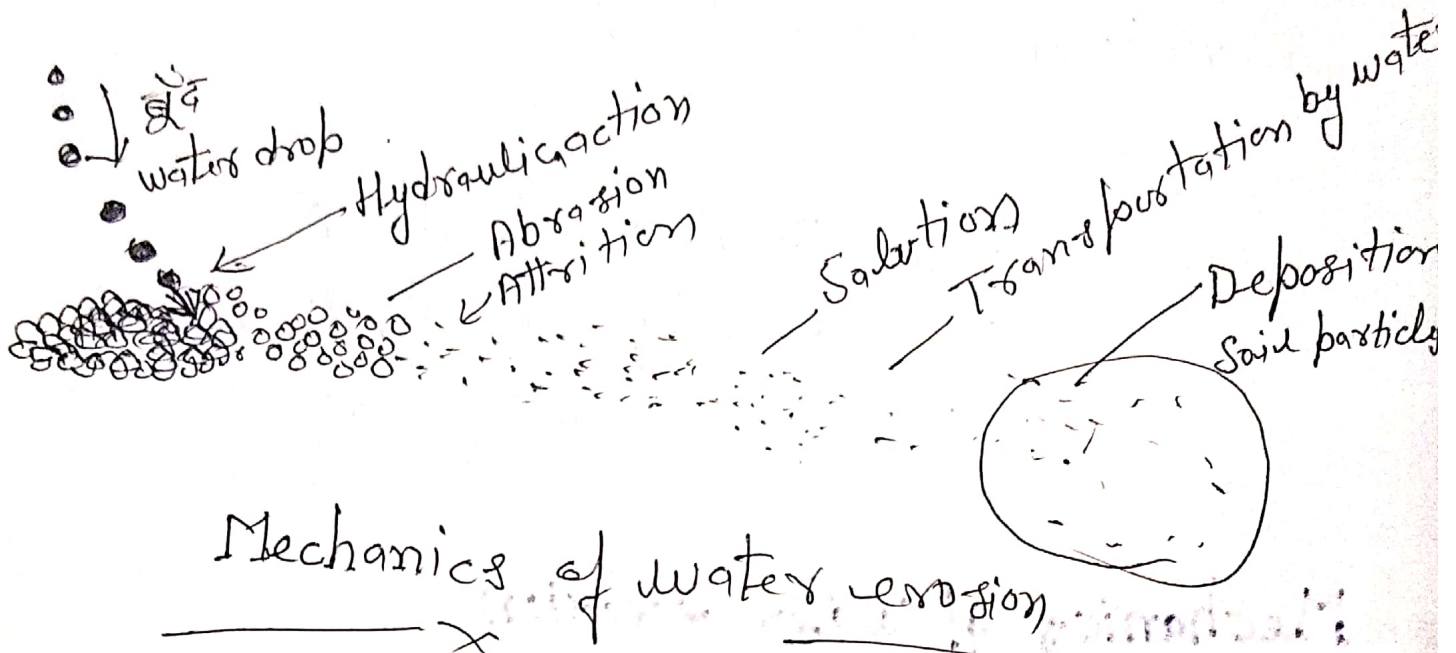 बूँद
water drop
Hydraulic action
Abrasion
Attrition
Solution
Transportation by wate
Deposition
Soil particls
Mechanics of water erosion